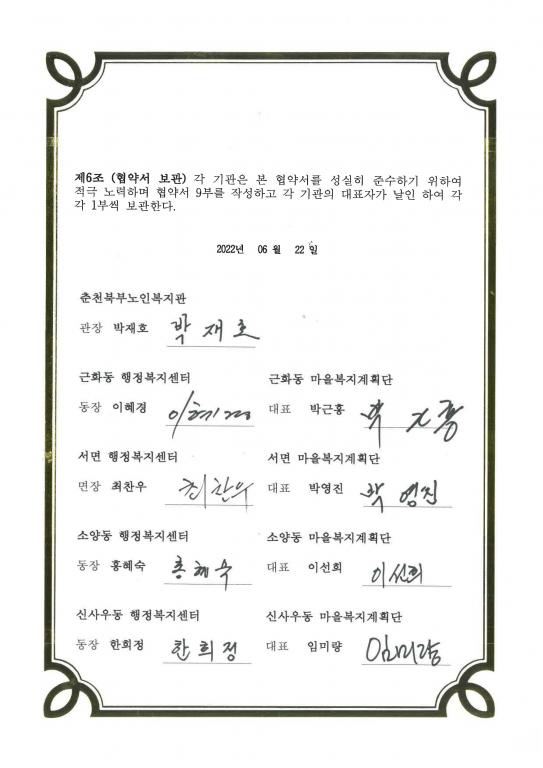 제6조 (협약서 보관) 각 기관은 본 협약서를 성실히 준수하기 위하여
적극 노력하며 협약서 9부를 작성하고 각 기관의 대표자가 날인 하여 각
각 1부씩 보관한다.
2022년 06 월 22 일
춘천북부노인복지관
관장 박재호 박재호
근화동 행정복지센터 근화동 마을복지계획단
동장 이혜경 이혜경 대표 박근홍
서면 행정복지센터 서면 마을복지계획단
면장 최찬우 최찬우 대표 박영진 박영진
소양동 행정복지센터 소양동 마을복지계획단
동장 홍혜숙 홍혜숙 대표 이선희 이선희
신사우동 행정복지센터 신사우동 마을복지계획단
동장 한희정 한희정 대표 임미량 임미량